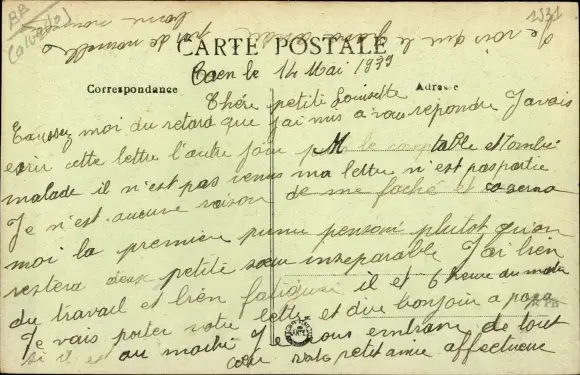 BB
(Calvados)
1531
Je vois que le
pas de nouvelle
bonne
CARTE POSTALE
Correspondance
Adresse
Caen le 14 Mai 1939
Chére petite Louisette
Excusez moi du retard que j'ai mis a vous repondre J'avais
ecrir cette lettre l'autre jour Mr le comptable et tombé
malade il n'est pas venus ma lettre n'est pas partie
Je n'est aucune raison de me faché et
moi la premiere punu pensoné plutot qu'on
restera deux petite sœur inseparable J'ai bien
du travail et bien fatiguée il et 6 heure du matin
Je vais porter votre lettre et dire bonjour a papa
si il et au marché Je vous embrasse de tout
cœur votre petit amie affectueuse